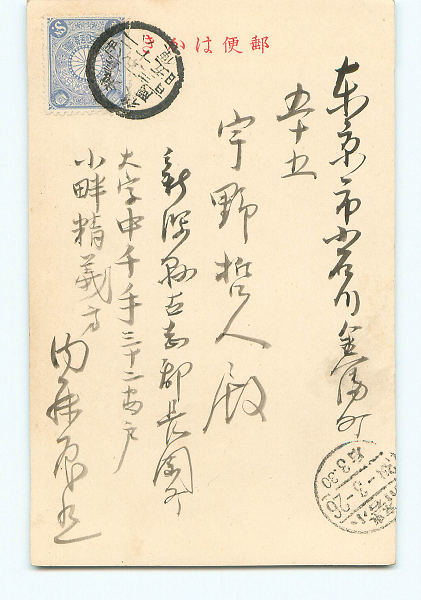 郵便はかき
東京市小石川金富町
五十五
宇野哲人殿
新潟縣古志郡長岡町
大字中千手三十二番戸
小畔精義方
内藤
3-26
3.30